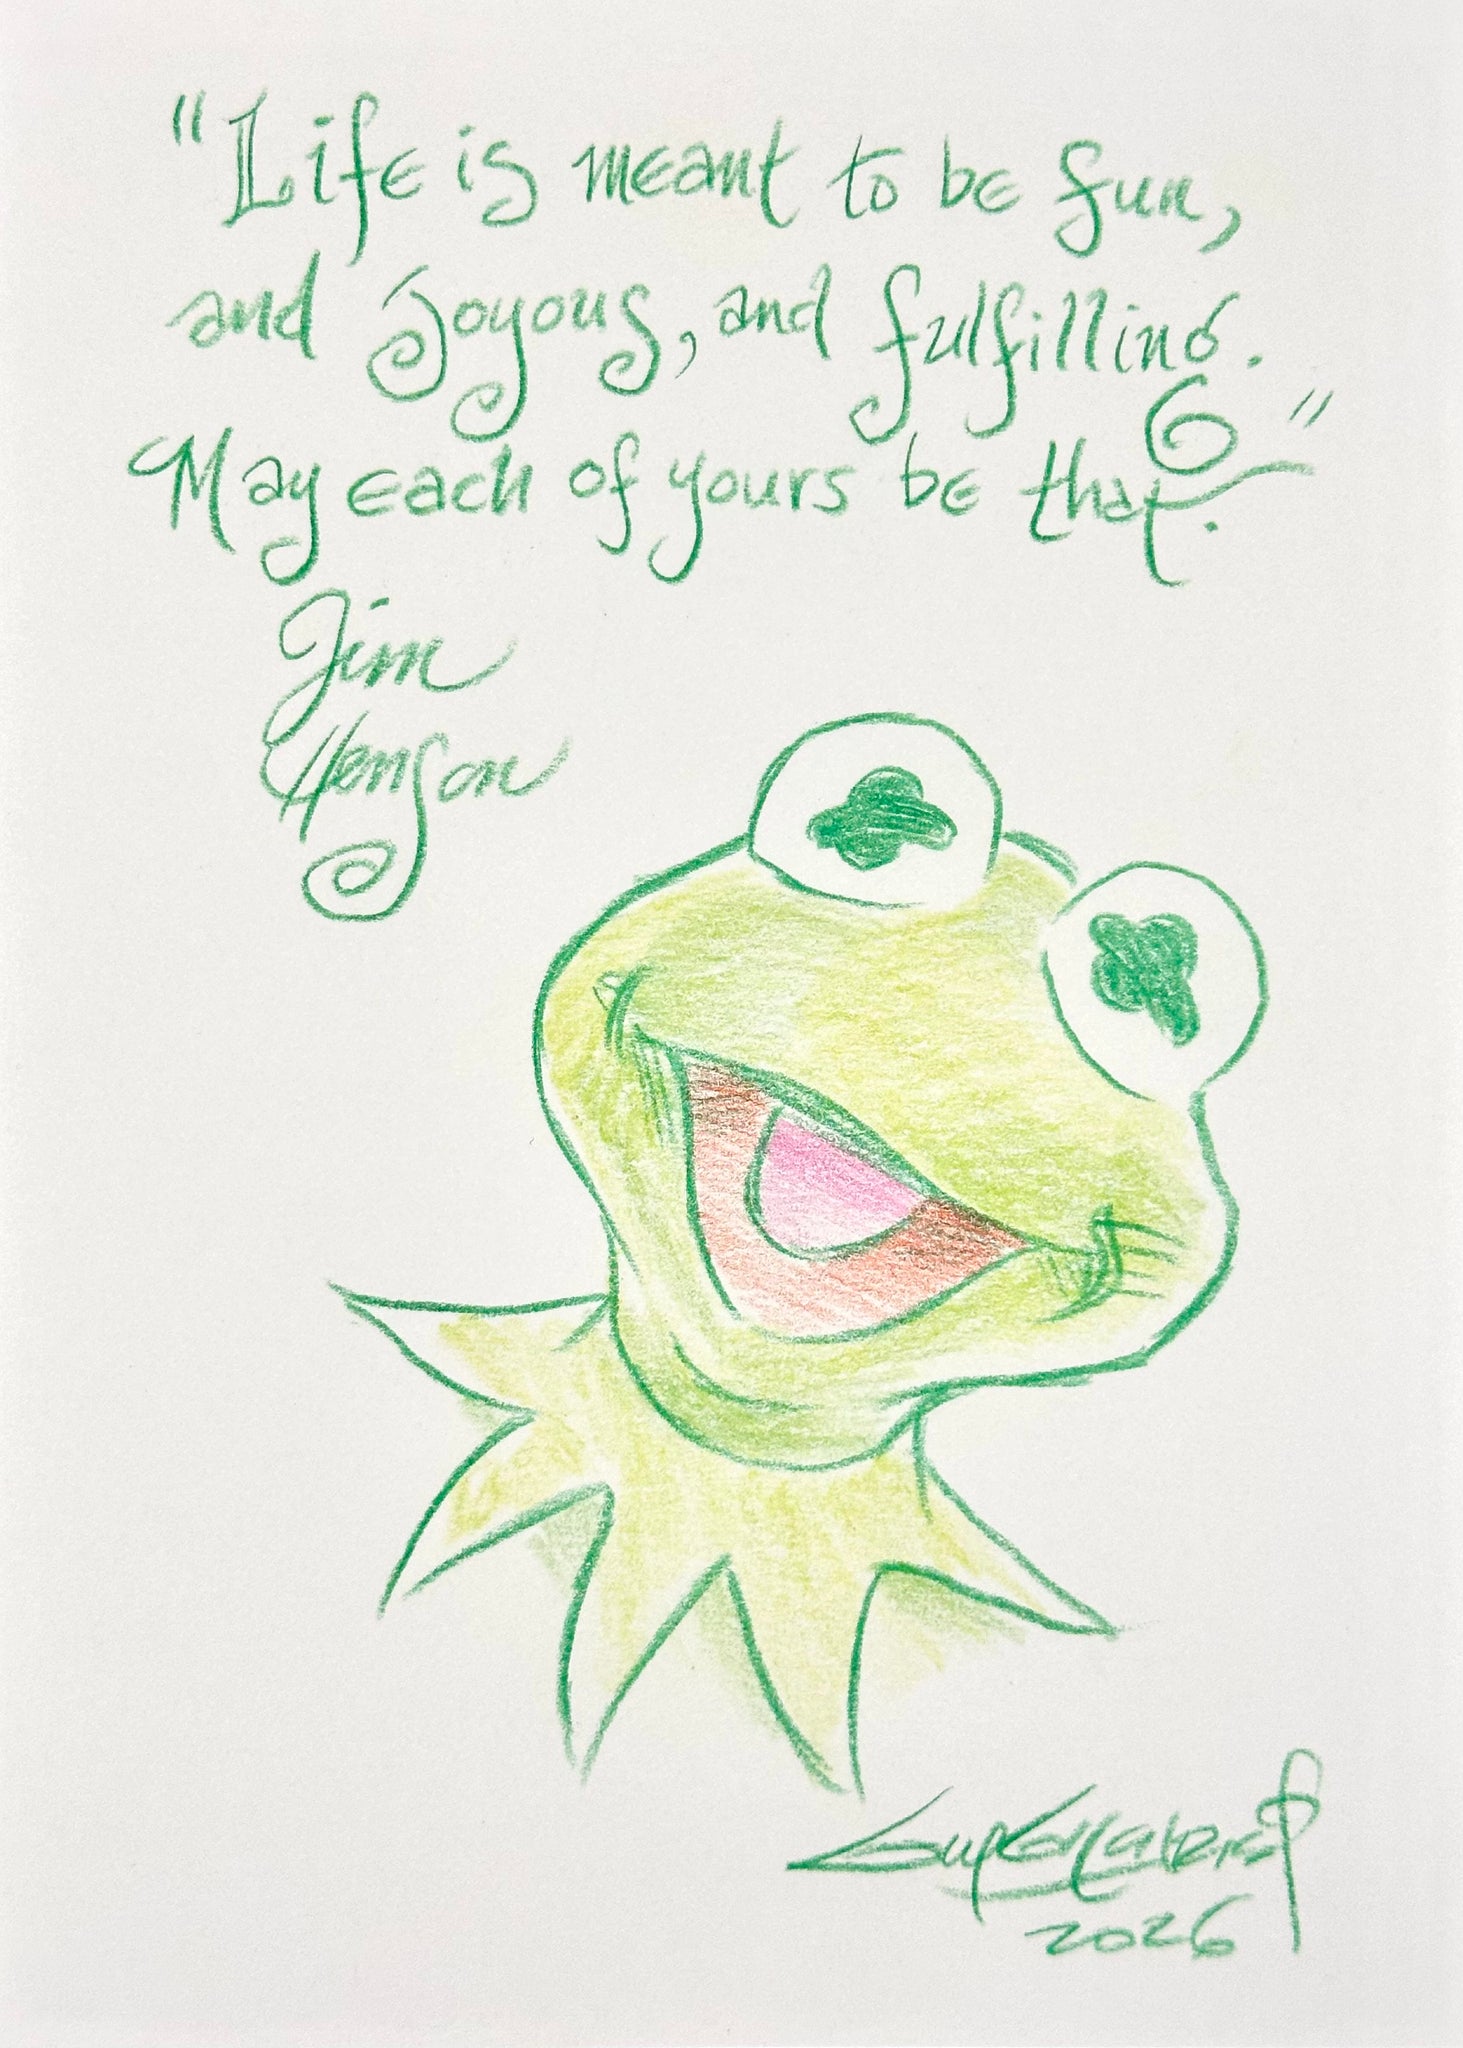 "Life is meant to be fun,
and joyous, and fulfilling.
May each of yours be that."
Jim
Henson
2026